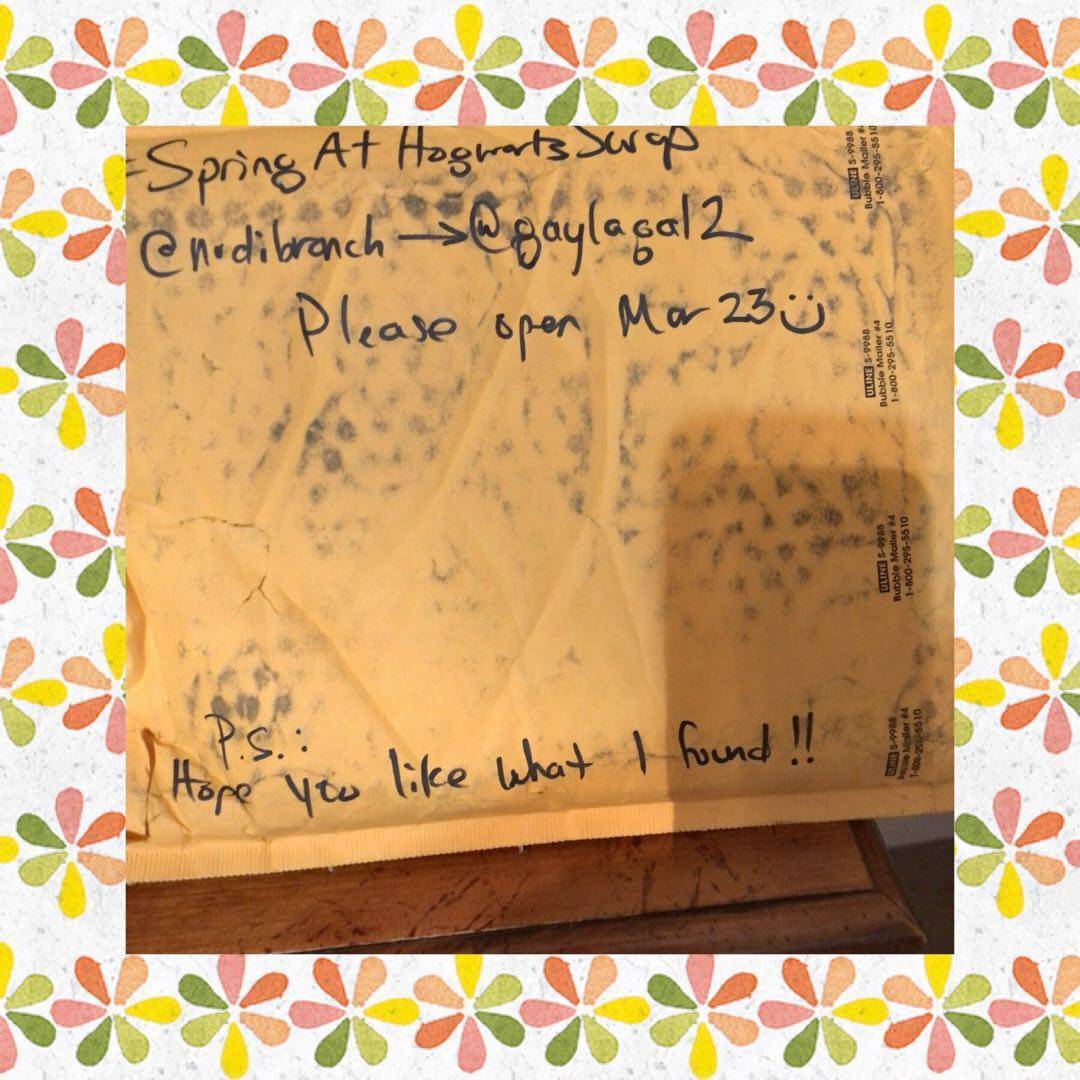 -Spring At Hogwarts Swap
@nudibranch → @gaylagal2
Please open Mar 23 :)
P.S.:
Hope you like what I found!!
ULINE S-9988
Bubble Mailer #4
1-800-295-5510
ULINE S-9988
Bubble Mailer #4
1-800-295-5510
ULINE S-9988
Bubble Mailer #4
1-800-295-5510
ULINE S-9988
Bubble Mailer #4
1-800-295-5510